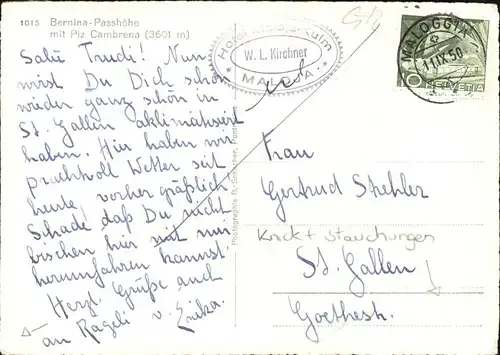 1015 Bernina-Passhöhe
mit Piz Cambrena (3601 m)
Salü Trudi! Nun
wirst Du Dich schön
wieder ganz schön in
St. Gallen aklimatisiert
haben. Hier haben wir
prachtvoll Wetter seit
heute, vorher gräßlich!
Schade daß Du nicht
bischen hier mit mir
herumfahren kannst.
Herzl. Grüße auch
an Rageli v. Erika.
Hotel Maloja-Kulm
W. L. Kirchner
MALOJA
MALOGGIA
11.IX.50.
10 HELVETIA
Frau
Gertrud Strehler
Knick + Stauchungen
St. Gallen
Goethestr.